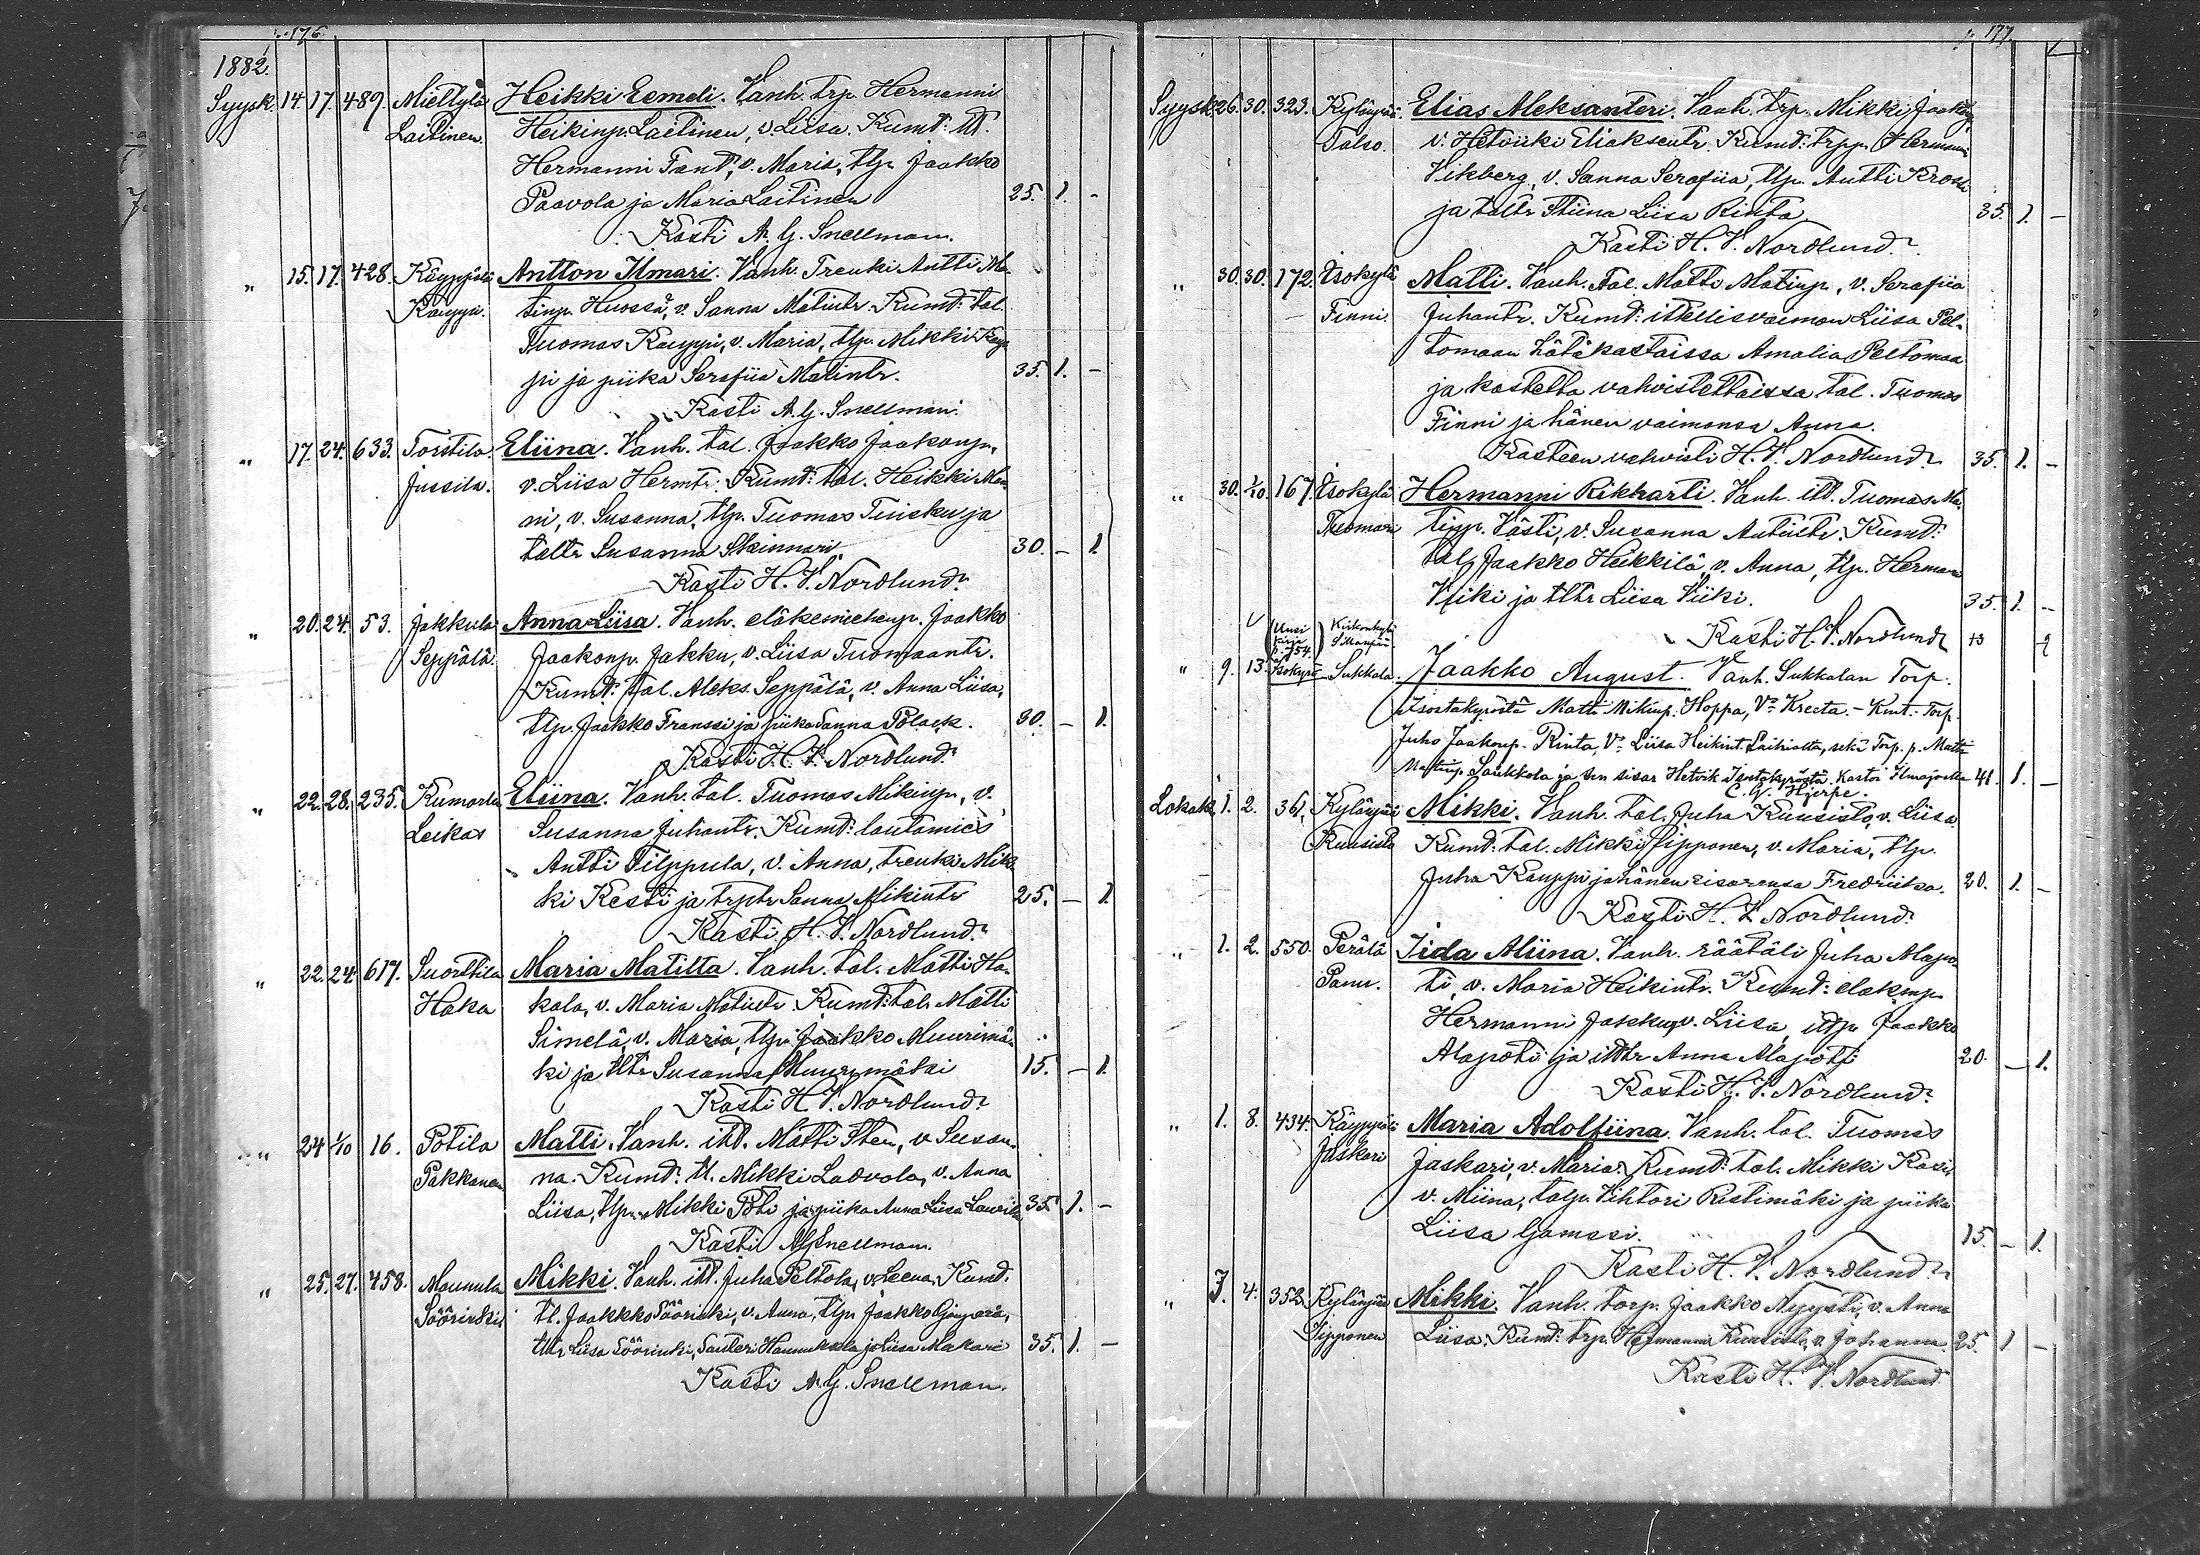 p. 176.
1882.
Syysk. 14. 17. 489. Miettylä Heikki Eemeli. Vanh. trp. Hermanni
Laitinen. Heikinp. Laitinen, v. Liisa. Kumd: tl.
Hermanni Tant, v. Maria, tlp. Jaakko
Paavola ja Maria Laitinen 25. 1. -
Kasti A. G. Snellman.
" 15. 17. 428. Käyppälä Antton Ilmari. Vanh. Trenki Antti Ma-
Kauppi. tinp. Huossa, v. Sanna Matintr. Kumd: tal.
Tuomas Kauppi, v. Maria, tlp. Mikki Kaup-
pi ja piika Serafiia Matintr. 35. 1. -
Kasti A. G. Snellman.
" 17. 24. 633. Torstila Eliina. Vanh. tal. Jaakko Jaakonp.,
Jussila. v. Liisa Hermtr. Kumd: tal. Heikki Man-
ni, v. Susanna, tlp. Tuomas Tuisku ja
taltr Susanna Skinnari. 30. - 1.
Kasti H. V. Nordlund.
" 20. 24. 53. Jakkula Anna Liisa. Vanh. eläkemiehenp. Jaakko
Seppälä. Jaakonp. Jakku, v. Liisa Tuomaantr.
Kumd: tal. Aleks. Seppälä, v. Anna Liisa,
tlp. Jaakko Franssi ja piika Sanna Polack. 30. - 1.
Kasti H. V. Nordlund.
" 22. 28. 235. Rumarla Eliina. Vanh. tal. Tuomas Mikinp., v.
Leikas Susanna Juhantr. Kumd: lautamies
Antti Filppula, v. Anna, trenki Mik-
ki Kesti ja trptr Sanna Mikintr 25. - 1.
Kasti H. V. Nordlund.
" 22. 24. 617. Suorttila Maria Matilta. Vanh. tal. Matti Ha-
Haka kala, v. Maria Matintr. Kumd: tal. Matti
Simelä, v. Maria, tlp. Jaakko Muurimä-
ki ja tltr Susanna Muurimäki 15. - 1.
Kasti H. V. Nordlund.
" 24 1/10 16. Potila Matti. Vanh. itl. Matti Sten, v. Susan-
Pakkanen na. Kumd: tl. Mikki Ladvola, v. Anna
Liisa, tlp. Mikki Poti ja piika Anna Liisa 35. 1. -
Kasti AGSnellman.
" 25. 27. 458. Maunula Mikki. Vanh. itl. Juha Peltola, v. Leena. Kumd.
Söörinki tl. Jaakkko Söörinki, v. Anna, tlp. Jaakko
tltr Liisa Söörinki, Santeri Hannuksela ja Liisa Makari 35. 1. -
Kasti A. G. Snellman.
p. 177.
Syysk. 26. 30. 323. Kylänpää Elias Aleksanteri. Vanh. trp. Mikki Jaakonp,
Talso. v. Hetviiki Eliaksentr. Kumd: trpp. Hermanni
Vikberg, v. Sanna Serafiia, tlp. Antti Krook
ja taltr Stiina Liisa Rinta. 35. 1. -
Kasti H. V. Nordlund.
" 30. 30. 172. Isokylä Matti. Vanh. tal. Matti Matinp., v. Serafiia
Finni. Juhantr. Kumd: itsellisvaimon Liisa Pel-
tomaan hätäkastaissa Amalia Peltomaa
ja kastetta vahvistettaissa tal. Tuomas
Finni ja hänen vaimonsa Anna.
Kasteen vahvisti H. V. Nordlund. 35. 1. -
" 30. 1/10 167. Isokylä Hermanni Rikharti. Vanh. itl. Tuomas Ma-
Tuomari tinp. Västi, v. Susanna Antintr. Kumd:
tal. Jaakko Heikkilä, v. Anna, tlp. Herman
Viiki ja tltr Liisa Viiki. 35. 1. -
Kasti H. V. Nordlund
(Uusi kirja p. 754.) Kirkonkylä
" 9. 13. Isokyrö Sukkala. Jaakko August. Vanh. Sukkalan Torp.
Isostakyröstä Matti Mikinp. Hoppa, Vo Kreeta. - Kmt. Torp.
Juho Jaakonp. Rinta, Vo Liisa Heikint. Laihialta, sekä Torp. p. Matti
Matinp. Saukkola ja sen sisar Hetvik Isostakyröstä. Kastoi Ilmajoella 41. 1. -
C. G. Hjerpe.
Lokak. 1. 2. 361. Kylänpää Mikki. Vanh. tal. Juha Kuusisto, v. Liisa.
Kuusisto Kumd: tal. Mikki Sipponen, v. Maria, tlp.
Juha Kauppi ja hänen sisarensa Fredriika. 20. 1. -
Kasti H. V. Nordlund.
" 1. 2. 550. Perälä Iida Aliina. Vanh. räätäli Juha Alapo-
Panu. ti, v. Maria Heikintr. Kumd: eläkmp.
Hermanni Jakku, v. Liisa, itlp. Jaakko
Alapoti ja itltr Anna Alapoti 20. - 1.
Kasti H. V. Nordlund.
" 1. 8. 434. Käyppälä Maria Adolfiina. Vanh. tal. Tuomas
Jaskari Jaskari, v. Maria. Kumd: tal. Mikki Kasi,
v. Miina, talp. Vihtori Ristimäki ja piika
Liisa Gamssi. 15. - 1.
Kasti H. V. Nordlund.
" 3. 4. 352. Kylänpää Mikki. Vanh. torp. Jaakko Nyysti, v. Anna
Sipponen Liisa. Kumd: trp. Hermanni Kuusisto, v. Johanna 25. 1 -
Kasti H. V. Nordlund